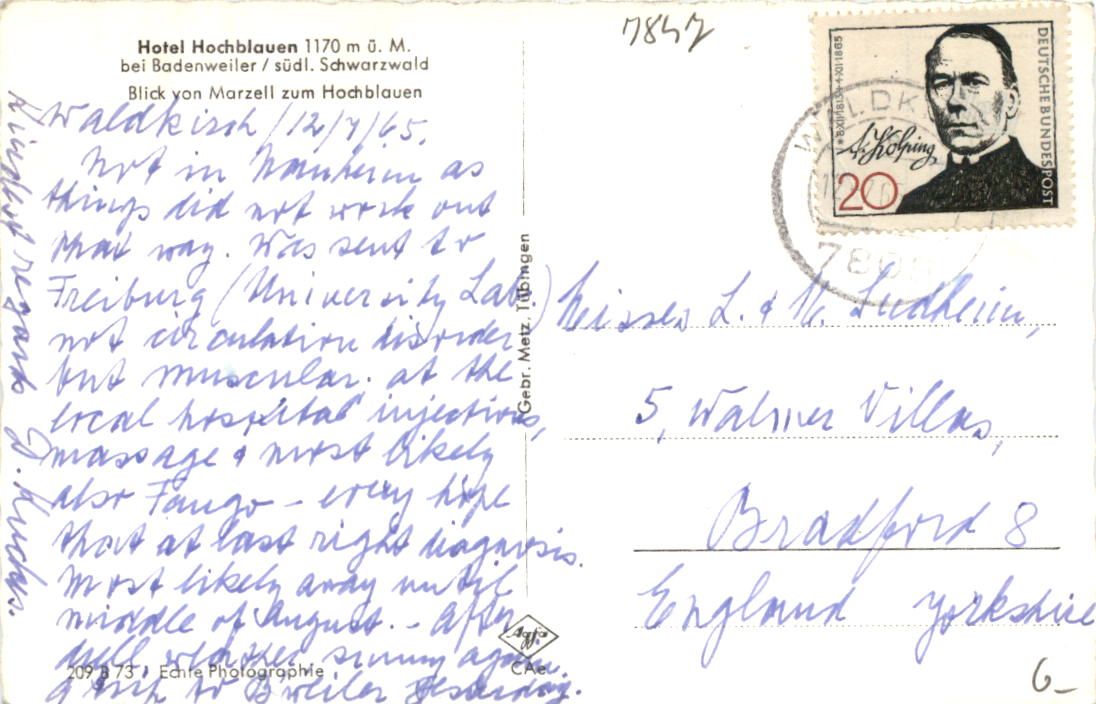 Hotel Hochblauen 1170 m ü. M.
bei Badenweiler / südl. Schwarzwald
Blick von Marzell zum Hochblauen
Waldkirch / 12/7/65.
Not in Manheim as
things did not work out
that way. Was sent to
Freiburg (University Lab.)
not circulation disorder
but muscular. at the
local hospital injections,
massage & most likely
also Fango – every hope
that at last right diagnosis.
Most likely away until
middle of August. – After
dull weather sunny again.
trip to B'weiler yesterday.
Kindest regards
209 B 73 Echte Photographie
Gebr. Metz, Tübingen
Agfa
CAe
7847
DEUTSCHE BUNDESPOST
* 8·XII·1813 + 4·XII·1865
A. Kolping
20
WALDK
780
Misses L. & M. Sudheim,
5, Walmer Villas,
Bradford 8
England Yorkshire
6-